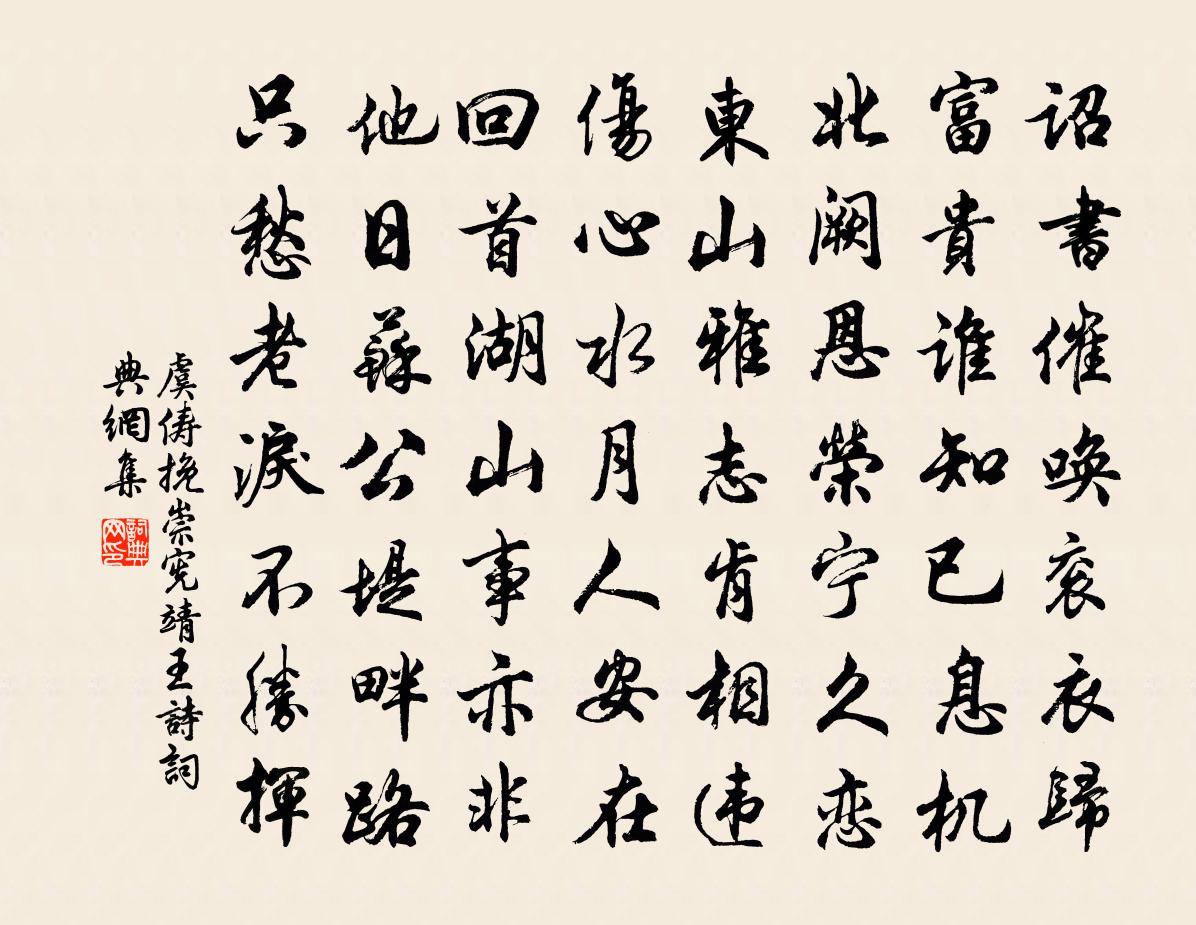 詔書催唤衮衣歸
富貴誰知已息机
北闕恩榮宁久恋
東山雅志肯相违
傷心水月人安在
回首湖山事亦非
他日蘇公堤畔路
只愁老淚不勝揮
虞儔挽崇宪靖王詩詞
典網集
詞典
网印